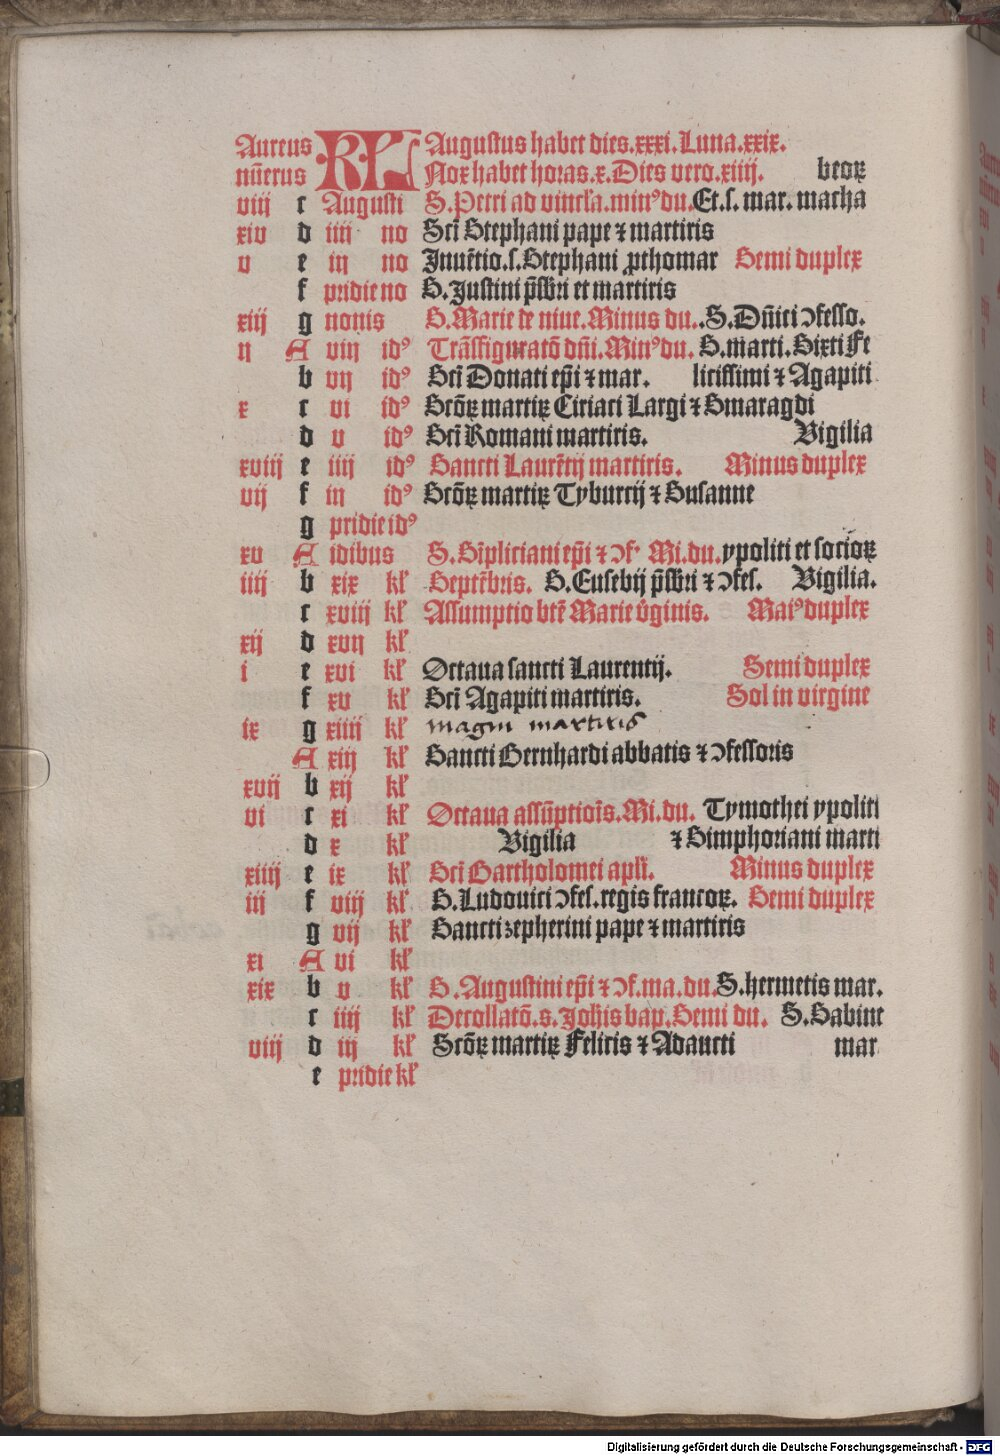 Aureus KL Augustus habet dies.xxxi.Luna.xxix.
nūerus Nox habet horas.x.Dies vero.xiiij. beoꝝ
viij c Augusti S.Petri ad vincl'a.minꝰdu.Et.s.mar.macha
xiv d iiij no Scī Stephani pape ⁊ martiris
v e iij no Invētio.s.Stephani ꝓthomar Semi duplex
f pridie no S.Justini p̄sbri et martiris
xiij g nonis S.Marie de niue.Minus du..S.Dn̄ici ↄfesso.
ij A viij idꝰ Trāsfiguratō dn̄i.Minꝰdu. S.marti.Sixti Fe
b vij idꝰ Scī Donati ep̄i ⁊ mar. licissimi ⁊ Agapiti
x c vi idꝰ Scōꝝ martiꝝ Ciriaci Largi ⁊ Smaragdi
d v idꝰ Scī Romani martiris. Vigilia
xviij e iiij idꝰ Sancti Laurētij martiris. Minus duplex
vij f iij idꝰ Scōꝝ martiꝝ Tyburcij ⁊ Susanne
g pridie idꝰ
xv A idibus S.Sīpliciani ep̄i ⁊ ↄf. Mi.du.ypoliti et socioꝝ
iiij b xix kl' Septēbris. S.Eusebij p̄sbri ⁊ ↄfes. Vigilia.
c xviij kl' Assumptio btē Marie v̄ginis. Maiꝰduplex
xij d xvij kl'
i e xvi kl' Octaua sancti Laurentij. Semi duplex
f xv kl' Scī Agapiti martiris. Sol in virgine
ix g xiiij kl' magni martiris
A xiij kl' Sancti Bernhardi abbatis ⁊ ↄfessoris
xvij b xij kl'
vi c xi kl' Octaua assūptiōis.Mi.du. Tymothei ypoliti
d x kl' Vigilia ⁊ Simphoriani marti
xiiij e ix kl' Scī Bartholomei apl'i. Minus duplex
iij f viij kl' S.Ludouici ↄfes.regis francoꝝ. Semi duplex
g vij kl' Sancti zepherini pape ⁊ martiris
xi A vi kl'
xix b v kl' S.Augustini ep̄i ⁊ ↄf.ma.du.S.hermetis mar.
c iiij kl' Decollatō.s.Johis bap.Semi du. S.Sabine
viij d iij kl' Scōꝝ martiꝝ Felicis ⁊ Adaucti mar
e pridie kl'
Digitalisierung gefördert durch die Deutsche Forschungsgemeinschaft - DFG